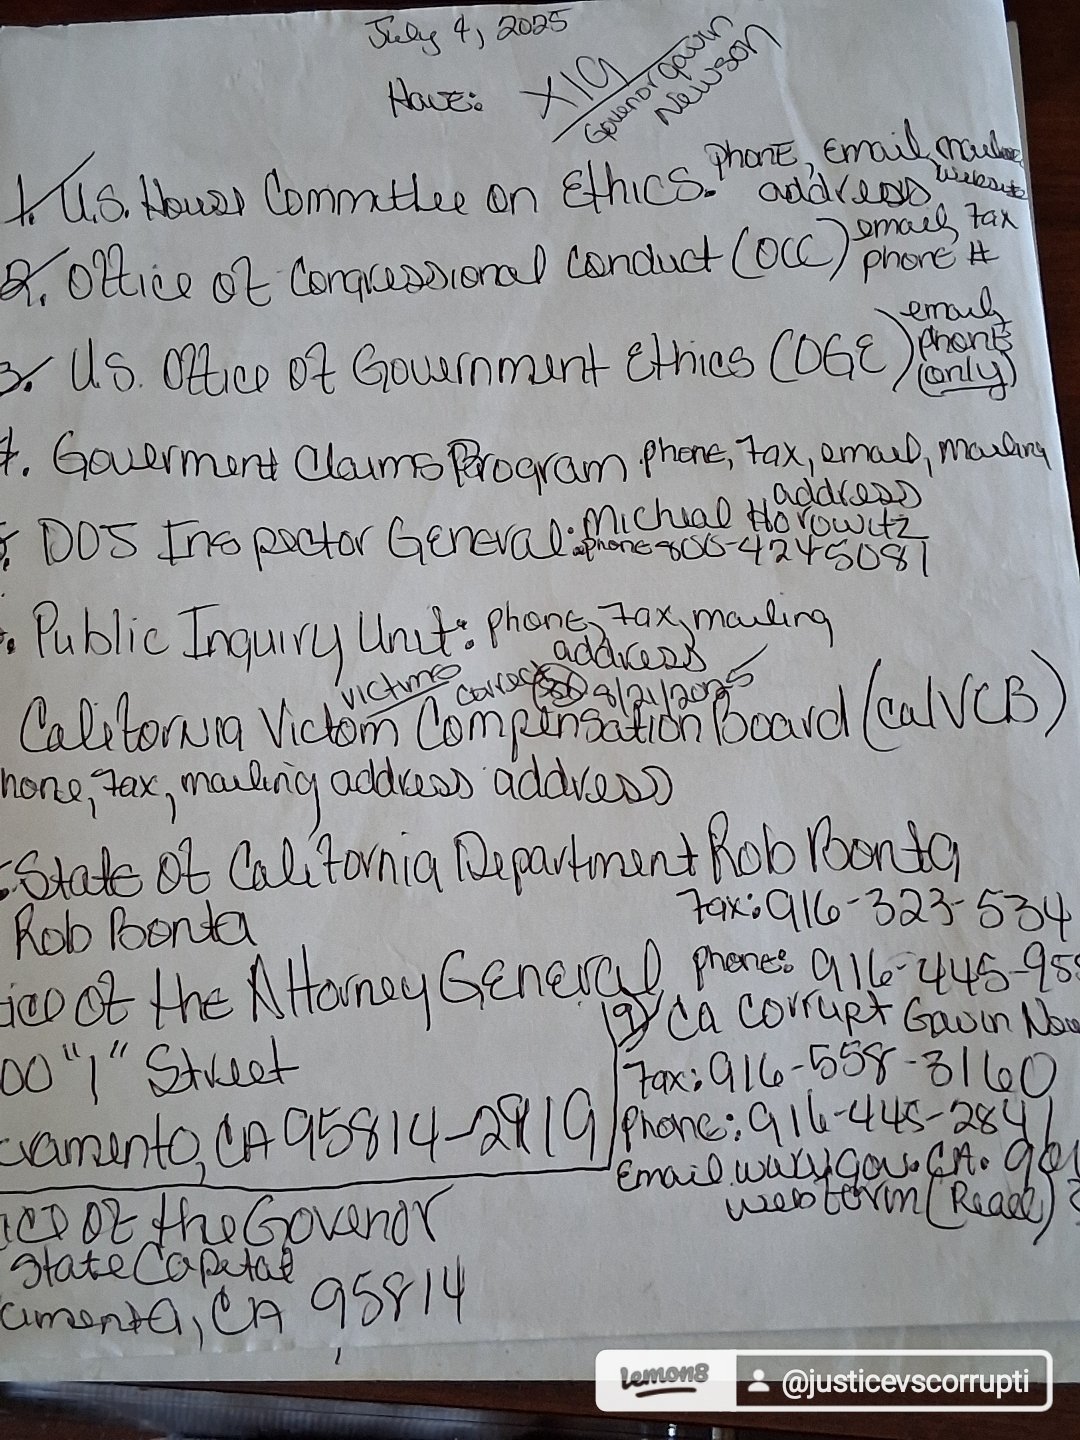 July 4, 2025
Have: X19
Govenor Gavin
Newson
1. U.S. House Committee on Ethics. phone, email, mailing
address website
2. Office of Congressional Conduct (OCC) email, fax
phone #
3. U.S. Office of Government Ethics (OGE) email,
phone
(only)
4. Goverment Claims Program phone, fax, email, mailing
address
DOJ Inspector General: Micheal Horowitz
phone 800-4245081
Public Inquiry Unit: phone, fax, mailing
address
victims correct 8/21/2025
California Victom Compensation Board (calVCB)
hone, fax, mailing address address
State of California Department Rob Bonta
Rob Bonta
Fax: 916-323-534
phone: 916-445-95
ice of the Attorney General
00 "I" Street
ramento, CA 95814-2919
9) CA Corrupt Gavin New
Fax: 916-558-3160
phone: 916-445-2841
Email www.gov.CA.gov
webform (Read)
ice of the Govenor
State Capetal
amenta, CA 95814
lemon8
@justicevscorrupti